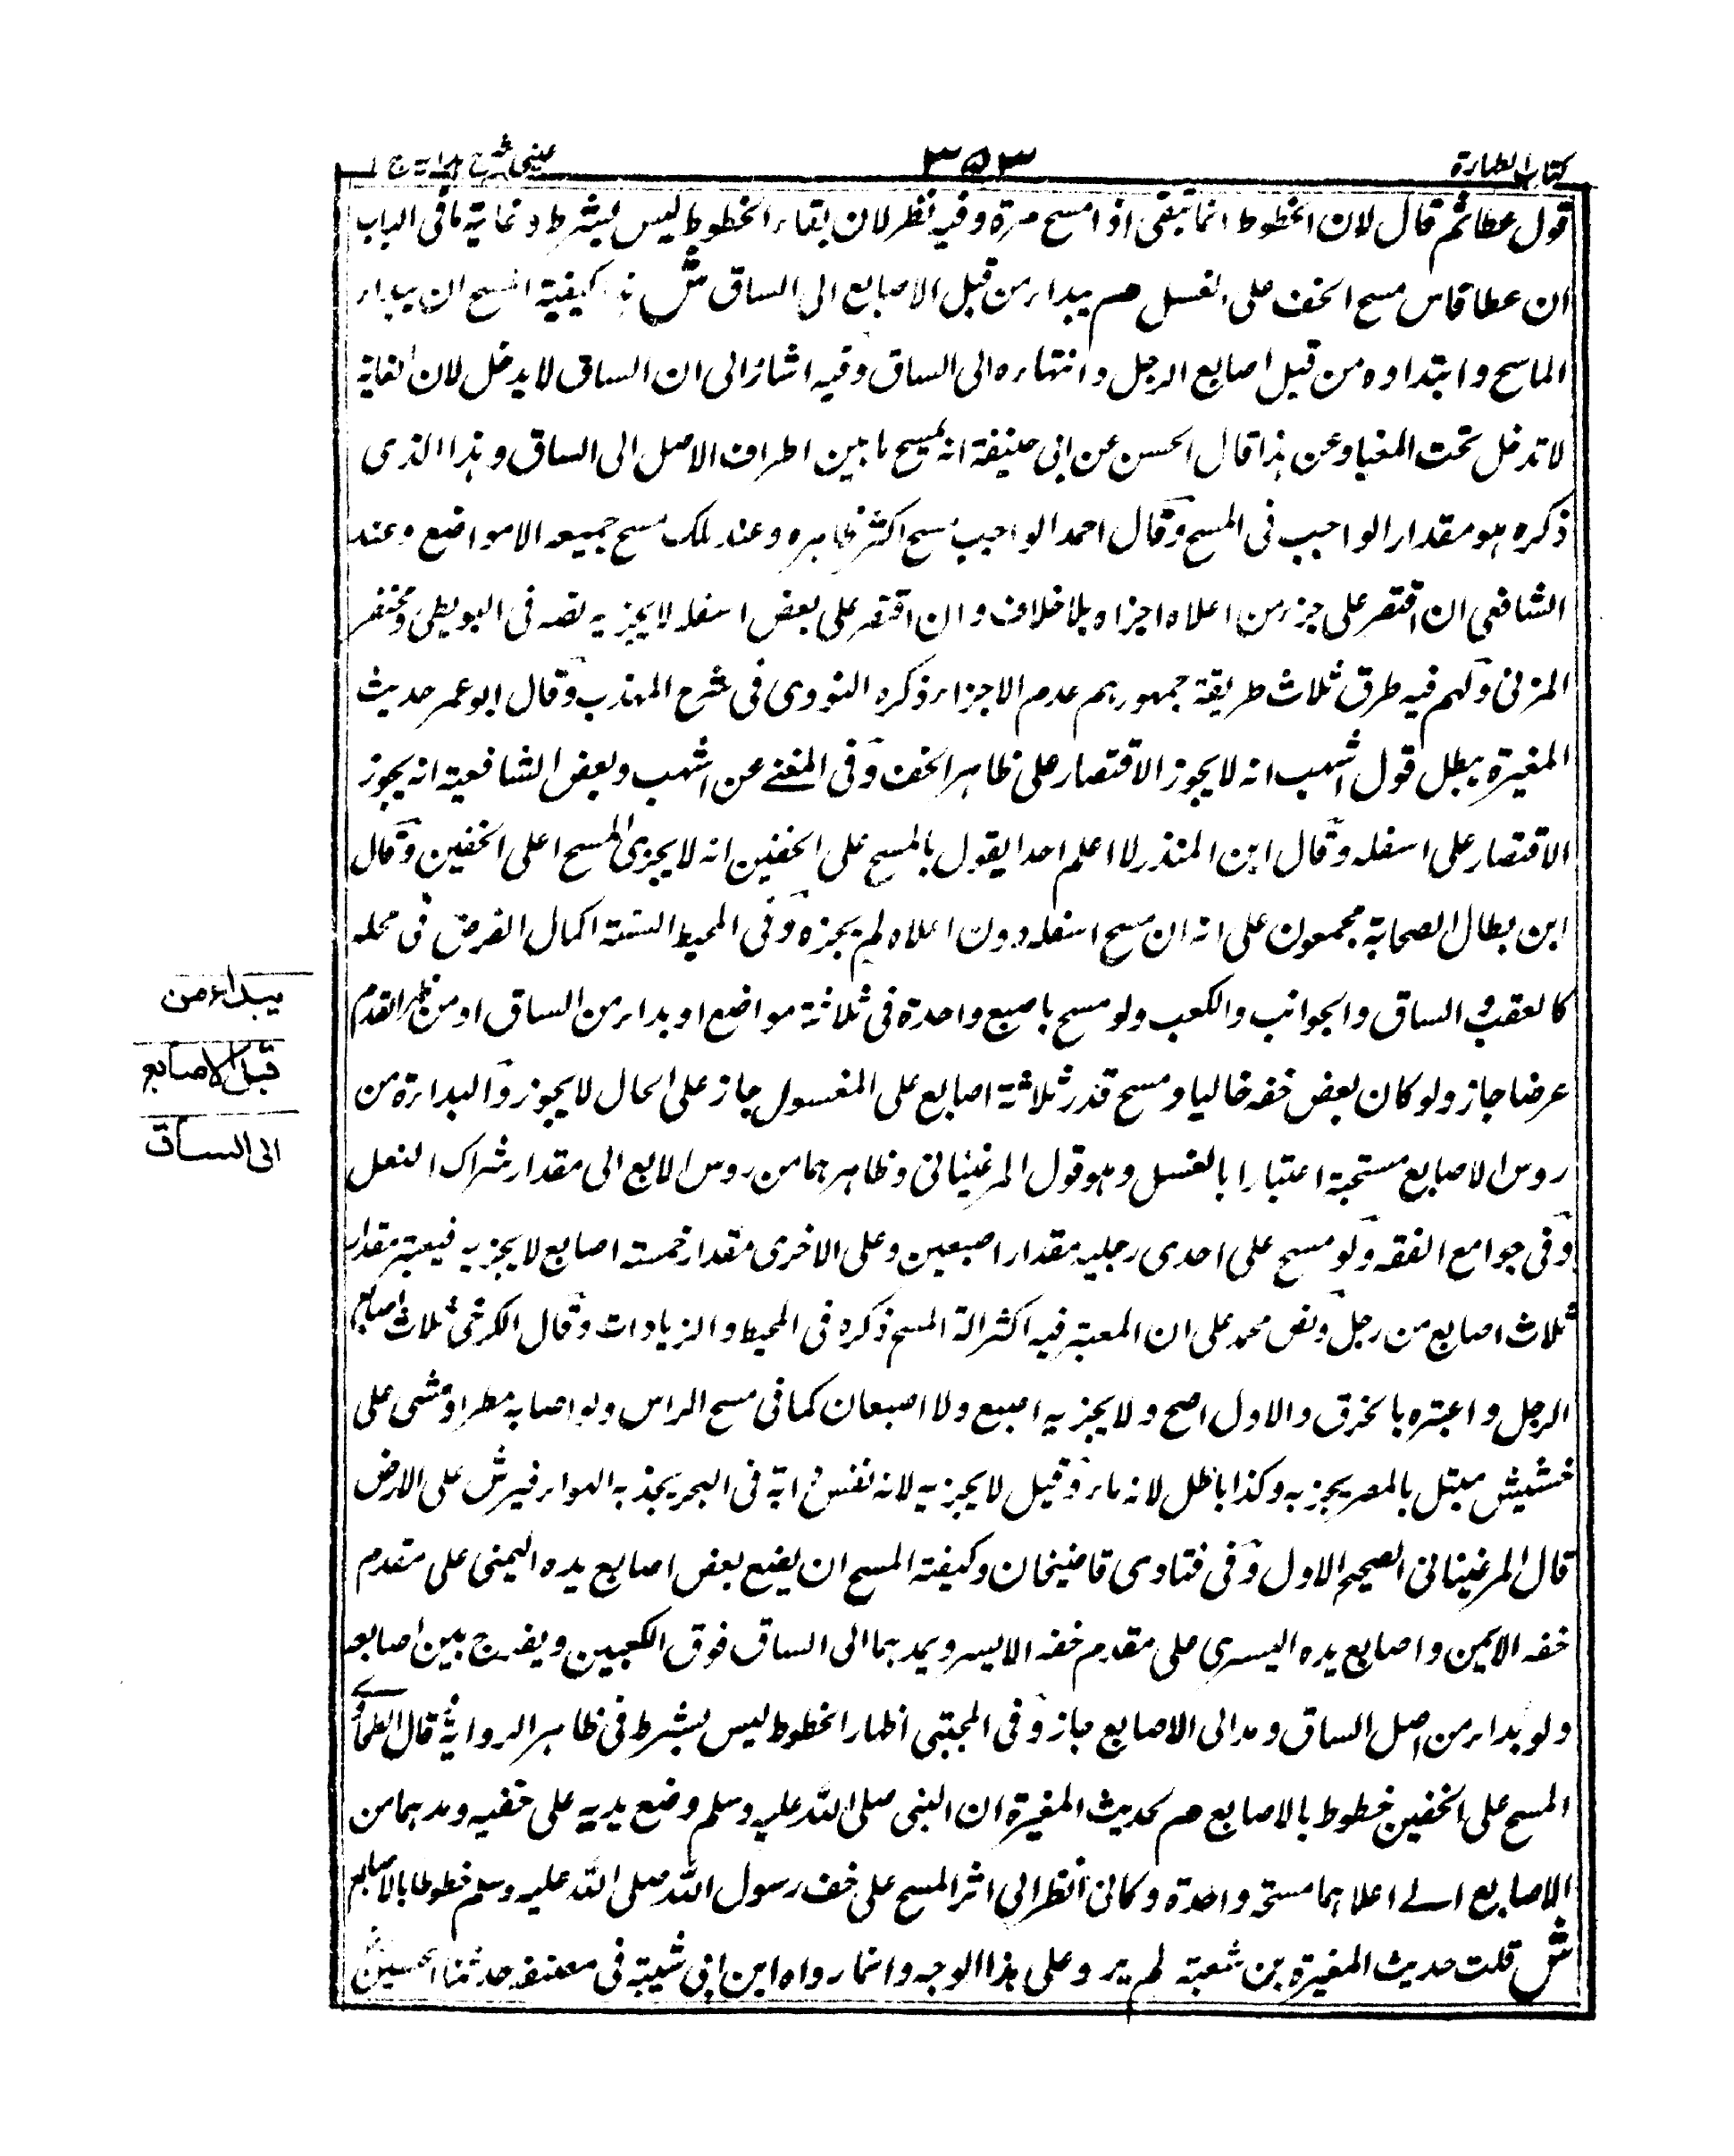 كتاب الطهارة
٣٥٣
عيني شرح هداية ج ١
قول عطا ثم قال لان الخطوط انما تبقى اذا مسح مرة وفيه نظر لان بقاء الخطوط ليس بشرط وغاية ما فى الباب
ان عطا قاس مسح الخف على الغسل م يبداء من قبل الاصابع الى الساق ش هذا كيفية المسح ان يبداء
الماسح وابتداوه من قبل اصابع الرجل وانتهاءه الى الساق وفيه اشارة الى ان الساق لا يدخل لان الغاية
لا تدخل تحت المغيا وعن هذا قال الحسن عن ابى حنيفة انه يمسح ما بين اطراف الاصل الى الساق وهذا الذى
ذكره هو مقدار الواجب فى المسح وقال احمد الواجب مسح اكثر ظاهره وعند ملك مسح جميعه الا مواضع وعند
الشافعى ان اقتصر على جزء من اعلاه اجزاه بلا خلاف وان اقتصر على بعض اسفله لا يجزيه نصه فى البويطى ومختصر
المزنى ولهم فيه طرق ثلاث طريقة جمهورهم عدم الاجزاء ذكره النووى فى شرح المهذب وقال ابو عمر حديث
المغيرة يبطل قول اشهب انه لا يجوز الاقتصار على ظاهر الخف وفى المغنے عن اشهب وبعض الشافعية انه يجوز
الاقتصار على اسفله وقال ابن المنذر لا اعلم احدا يقول بالمسح على الخفين انه لا يجزى المسح اعلى الخفين وقال
ابن بطال الصحابة مجمعون على انه ان مسح اسفله دون اعلاه لم يجزه وفى المحيط السنة اكمال الفرض فى محله
كالعقب و الساق والجوانب والكعب ولو مسح باصبع واحدة فى ثلاثة مواضع او بداء من الساق او من ظهر القدم
عرضا جاز ولو كان بعض خفه خاليا ومسح قدر ثلاثة اصابع على المغسول جاز على الحال لا يجوز والبداءة من
روس الاصابع مستحبة اعتبارا بالغسل وهو قول المرغينانى وظاهرهما من روس الابع الى مقدار شراك النعل
وفى جوامع الفقه ولو مسح على احدى رجليه مقدار اصبعين وعلى الاخرى مقدار خمسة اصابع لا يجزيه فيعتبر مقدار
ثلاث اصابع من رجل ونص محمد على ان المعتبر فيه اكثر الة المسح ذكره فى المحيط والزيادات وقال الكرخى ثلاث اصابع
الرجل واعتبره بالخرق والاول اصح ولا يجزيه اصبع ولا اصبعان كما فى مسح الراس ولو اصابه مطر او مشى على
خشيش مبتل بالمصر يجزيه وكذا باظل لانه ماء وقيل لا يجزيه لانه نفس دابة فى البحر يجذبه الهواء فيرش على الارض
قال المرغينانى الصحيح الاول وفى فتاوى قاضيخان وكيفية المسح ان يضع بعض اصابع يده اليمنى على مقدم
خفه الايمن واصابع يده اليسرى على مقدم خفه الايسر ويمدهما الى الساق فوق الكعبين ويفرج بين اصابعه
ولو بداء من اصل الساق ومد الى الاصابع جاز وفى المجتبى اظهار الخطوط ليس بشرط فى ظاهر الرواية قال الطحاوى
المسح على الخفين خطوط بالاصابع م لحديث المغيرة ان النبى صلى الله عليه وسلم وضع يديه على خفيه ومدهما من
الاصابع الے اعلاهما مسحة واحدة وكانى انظر الى اثر المسح على خف رسول الله صلى الله عليه وسلم خطوطا بالاصابع
ش قلت حديث المغيرة بن شعبة لم يرو على هذا الوجه وانما رواه ابن ابى شيبة فى مصنفه حدثنا الحسين
يبداء من
قبل الاصابع
الى الساق